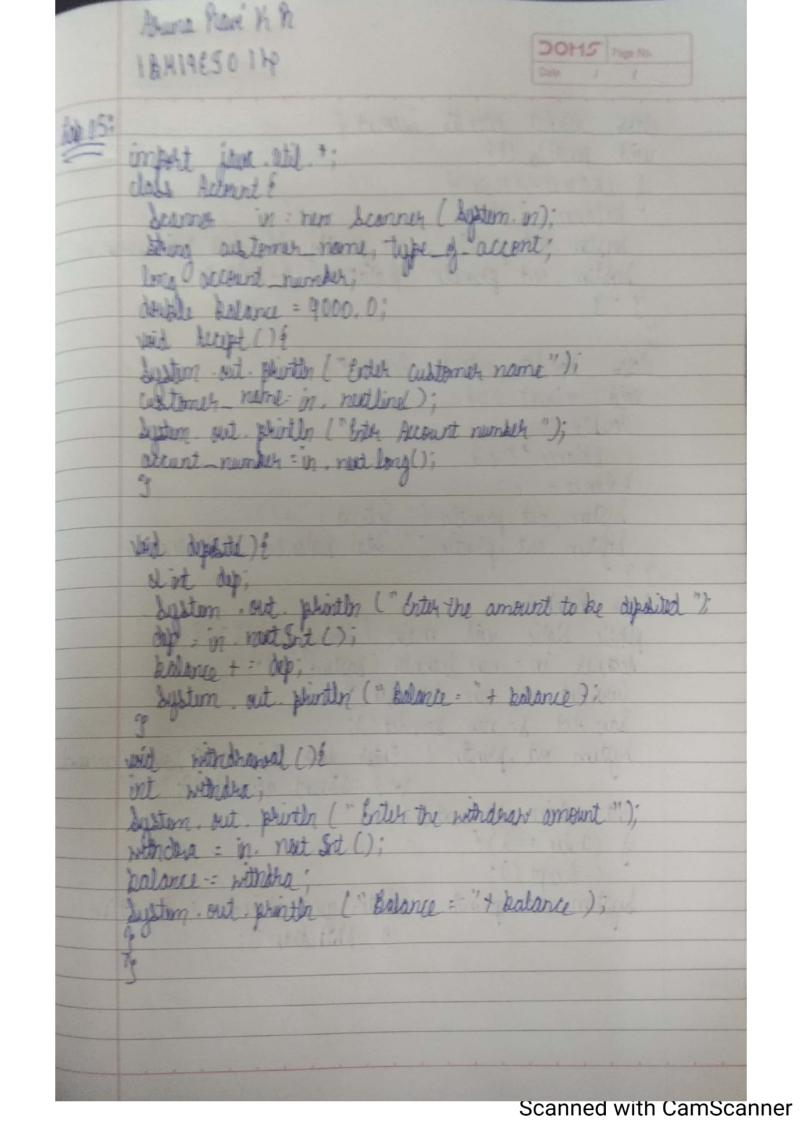 Aruna Ravi K R
1BM19CS014
DOMS Page No.
Date / /
Lab 05:
import java.util.*;
class Account{
Scanner in = new Scanner (System.in);
String customer_name, type_of_accont;
long account_number;
double balance = 9000.0;
void Accept(){
System.out.println ("Enter customer name");
customer_name = in.nextline();
System.out.println ("Enter Account number");
accunt_number = in.next long();
}
void deposite(){
int dep;
System.out.println ("Enter the amount to be deposited");
dep = in.next Int ();
balance += dep;
System.out.println ("balance = "+ balance);
}
void withdrawal (){
int withdra;
System.out.println ("Enter the withdraw amount");
withdra = in.next Int ();
balance -= withdra;
System.out.println ("Balance = "+ balance);
}
}
Scanned with CamScanner